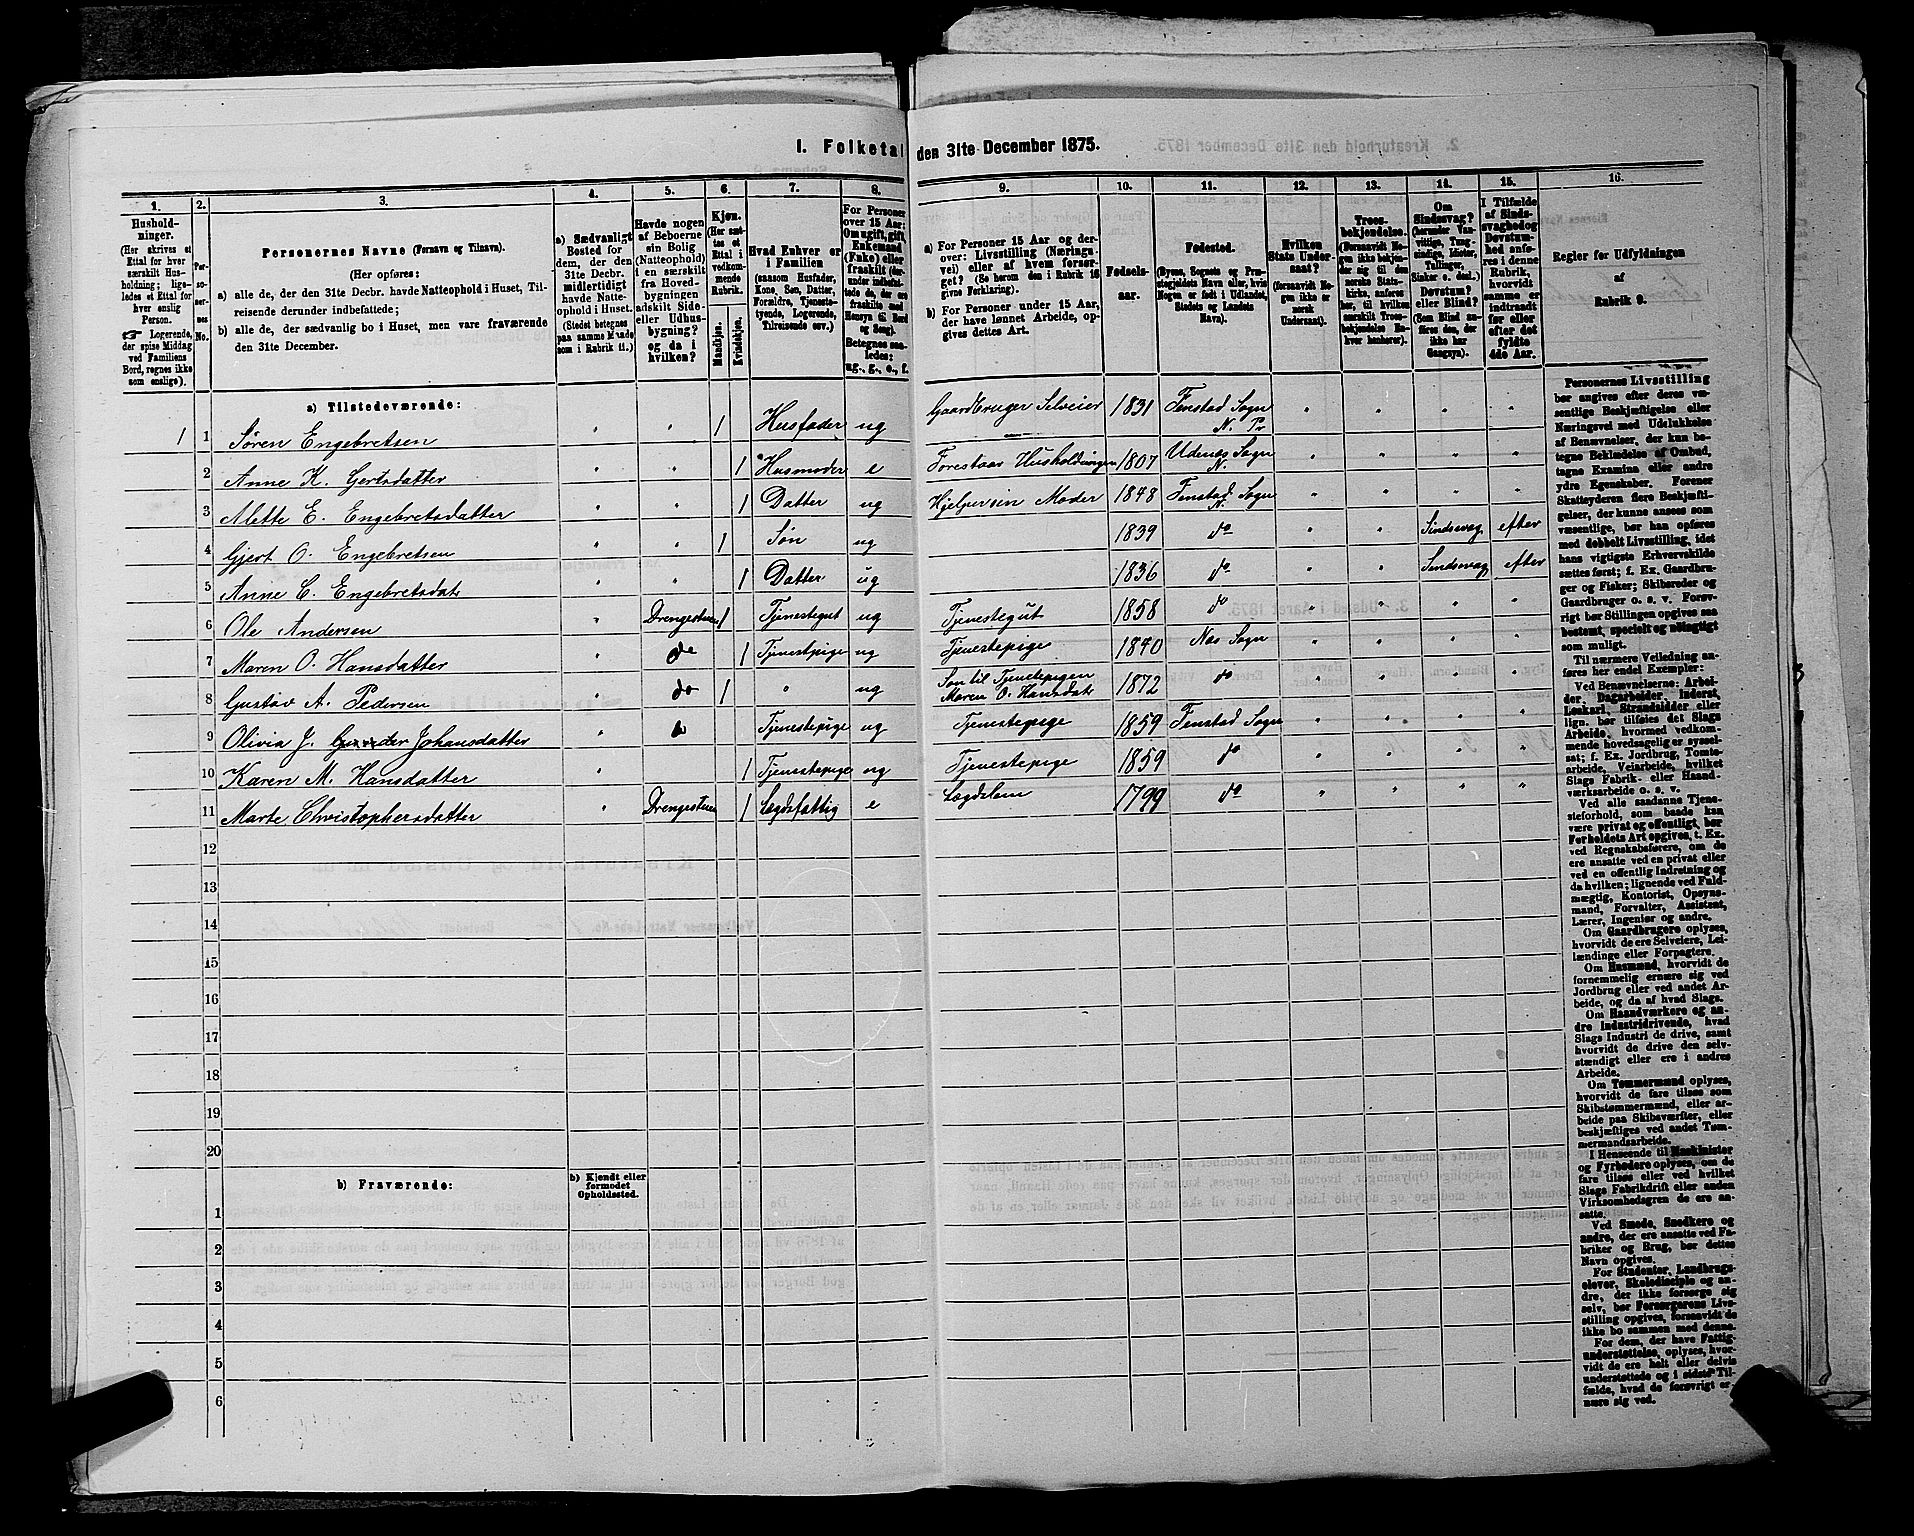 I. Folketal den 31te December 1875.
1. 2. 3. 4. 5. 6. 7. 8. 9. 10. 11. 12. 13. 14. 15. 16.
Hushold-
ninger.
(Her skrives et
Ettal for hver
særskilt Hus-
holdning; lige-
ledes et Ettal for
hver enslig
Person.
☞ Logerende,
der spise Middag
ved Familiens
Bord, regnes ikke
som enslige).
Per-
soner-
nes
No.
Personernes Navne (Fornavn og Tilnavn).
(Her opføres:
a) alle de, der den 31te Decbr. havde Natteophold i Huset, Til-
reisende derunder indbefattede;
b) alle de, der sædvanlig bo i Huset, men vare fraværende
den 31te December.
a) Sædvanligt
Bosted for
dem, der den
31te Decbr.
midlertidigt
havde Natte-
ophold i Huset.
(Stedet betegnes
paa samme Maade
som i Rubrik 11.)
Havde nogen
af Beboerne
sin Bolig
(Natteophold)
i en særskilt
fra Hoved-
bygningen
adskilt Side-
eller Udhus-
bygning?
og da i
hvilken?
Kjøn.
(Her sæt-
tes et
Ettal i
vedkom-
mende
Rubrik.
Mandkjøn.
Kvindekjøn.
Hvad Enhver er
i Familien
(saasom Husfader,
Kone, Søn, Datter,
Forældre, Tjeneste-
tyende, Logerende,
Tilreisende osv.)
For Personer
over 15 Aar:
Om ugift, gift,
Enkemand
(Enke) eller
fraskilt
Betegnes saa-
ledes:
ug., g., e., f.
a) For Personer 15 Aar og der-
over: Livsstilling (Nærings-
vei) eller af hvem forsør-
get? (Se herom den i Rubrik 16
givne Forklaring).
b) For Personer under 15 Aar,
der have lønnet Arbeide, op-
gives dettes Art.
Fødsels-
aar.
Fødested.
(Byens, Sognets og Præ-
stegjeldets Navn eller, hvis
Nogen er født i Udlandet,
Stedets og Landets
Navn).
Hvilken
Stats Under-
saat?
(forsaavidt No-
gen ikke er
norsk
Undersaat).
Troes-
bekjendelse.
(Forsaavidt No-
gen ikke bekjen-
der sig til den
norske Stats-
kirke, anføres
her, til hvilken
særskilt Troes-
bekjendelse En-
hver henhører).
Om
Sindssvag?
(herunder Van-
vittige, Tung-
sindige, Idioter,
Tullinger,
Sinker o. desl.)
Døvstum?
eller Blind?
(Som Blind an-
føres den, der
ikke har
Gangsyn).
I Tilfælde
af Sinds-
svaghed og
Døvstum-
hed anfø-
res i denne
Rubrik,
hvorvidt
samme er
indtraadt
før eller
efter det
fyldte
4de Aar.
Regler for Udfyldningen
af
Rubrik 9.
a) Tilstedeværende:
1 1 Søren Engebretsen " " 1 Husfader ug Gaardbruger Selveier 1831 Fenstad Sogn N. Pr " " " "
2 Anne K. Gertsdatter " " 1 Husmoder e Forestaar Husholdningen 1807 Udenæs Sogn N. " " " "
3 Alette E. Engebretsdatter " " 1 Datter ug Hjelper sin Moder 1848 Fenstad Sogn N. " " " "
4 Gjert O. Engebretsen " " 1 Søn ug 1839 do " " Sindssvag efter
5 Anne C. Engebretsdat " " 1 Datter ug 1836 do " " Sindssvag efter
6 Ole Andersen " Drengestuen 1 Tjenestegut ug Tjenestegut 1858 do " " " "
7 Maren O. Hansdatter " do 1 Tjenestpige ug Tjenestepige 1840 Næs Sogn " " " "
8 Gustav A. Pedersen " do 1 " ug Søn til Tjenestepigen
Maren O. Hansdat 1872 do " " " "
9 Olivia J. Johansdatter " Tjenestepige ug Tjenestepige 1859 Fenstad Sogn " " " "
10 Karen M. Hansdatter " 1 Tjenestepige ug Tjenestepige 1859 do " " " "
11 Marte Christophersdatter " Drengestuen 1 Lægdsfattig e Lægdslem 1799 do " " " "
12
13
14
15
16
17
18
19
20
b) Fraværende:
b) Kjendt eller
formodet
Opholdssted.
1
2
3
4
5
6
Personernes Livsstilling
bør angives efter deres væ-
sentlige Beskjæftigelse eller
Næringsvei med Udelukkelse
af Benævnelser, der kun be-
tegne Beklædelse af Ombud,
tagne Examina eller andre
ydre Egenskaber. Forener
Skatteyderen flere Beskjæfti-
gelser, der kunne ansees som
væsentlige, bør han opføres
med dobbelt Livsstilling, idet
hans vigtigste Erhvervskilde
sættes først; f. Ex. Gaardbru-
ger og Fisker; Skibsreder og
Gaardbruger o. s. v. Forøv-
rigt bør Stillingen opgives saa
bestemt, specielt og nøiagtigt
som muligt.
Til nærmere Veiledning an-
føres her endel Exempler:
Ved Benævnelserne: Arbei-
der, Dagarbeider, Inderst,
Løskarl, Strandsidder eller
lign. bør tilføies det Slags
Arbeide, hvormed vedkom-
mende hovedsagelig er syssel-
sat; f. Ex. Jordbrug, Tomte-
arbeide, Veiarbeide, hvilket
Slags Fabrik- eller Haand-
værksarbeide o. s. v.
Ved alle saadanne Tjene-
steforhold, som baade kan
være privat og offentligt, bør
Forholdets Art opgives, t. Ex.
ved Regnskabsførere, om de
ere ansatte ved en privat eller
ved en offentlig Indretning og
da hvilken; lignende ved Fuld-
mægtig, Kontorist, Opsyns-
mand, Forvalter, Assistent,
Lærer, Ingeniør og andre.
Om Gaardbrugere oplyses,
hvorvidt de ere Selveiere, Lei-
lændinge eller Forpagtere.
Om Husmænd, hvorvidt de
fornemmelig ernære sig ved
Jordbrug eller ved andet Ar-
beide, og da af hvad Slags.
Om Haandværkere og an-
dre Industridrivende, hvad
Slags Industri de drive, samt
hvorvidt de drive den selv-
stændigt eller ere i andres
Arbeide.
Om Tømmermænd oplyses,
hvorvidt de fare tilsøs som
Skibstømmermænd, eller ar-
beide paa Skibsværfter, eller
beskjæftiges ved andet Tøm-
mermandsarbeide.
I Henseende til Maskinister
og Fyrbødere oplyses, om de
fare tilsøs eller ved hvilket
Slags Fabrikdrift eller anden
Virksomhedsgren de ere an-
satte.
Ved Smede, Snedkere og
andre, der ere ansatte ved Fa-
briker og Brug, bør dettes
Navn opgives.
For Studenter, Landbrugs-
elever, Skoledisciple og an-
dre, der ikke forsørge sig
selv, bør Forsørgerens Livs-
stilling opgives, forsaavidt de
ikke bo sammen med denne.
For dem, der have Fattig-
understøttelse, oplyses, hvor-
vidt de ere helt eller delvis
understøttede og i sidste Til-
fælde, hvad de forøvrigt er-
nære sig ved.